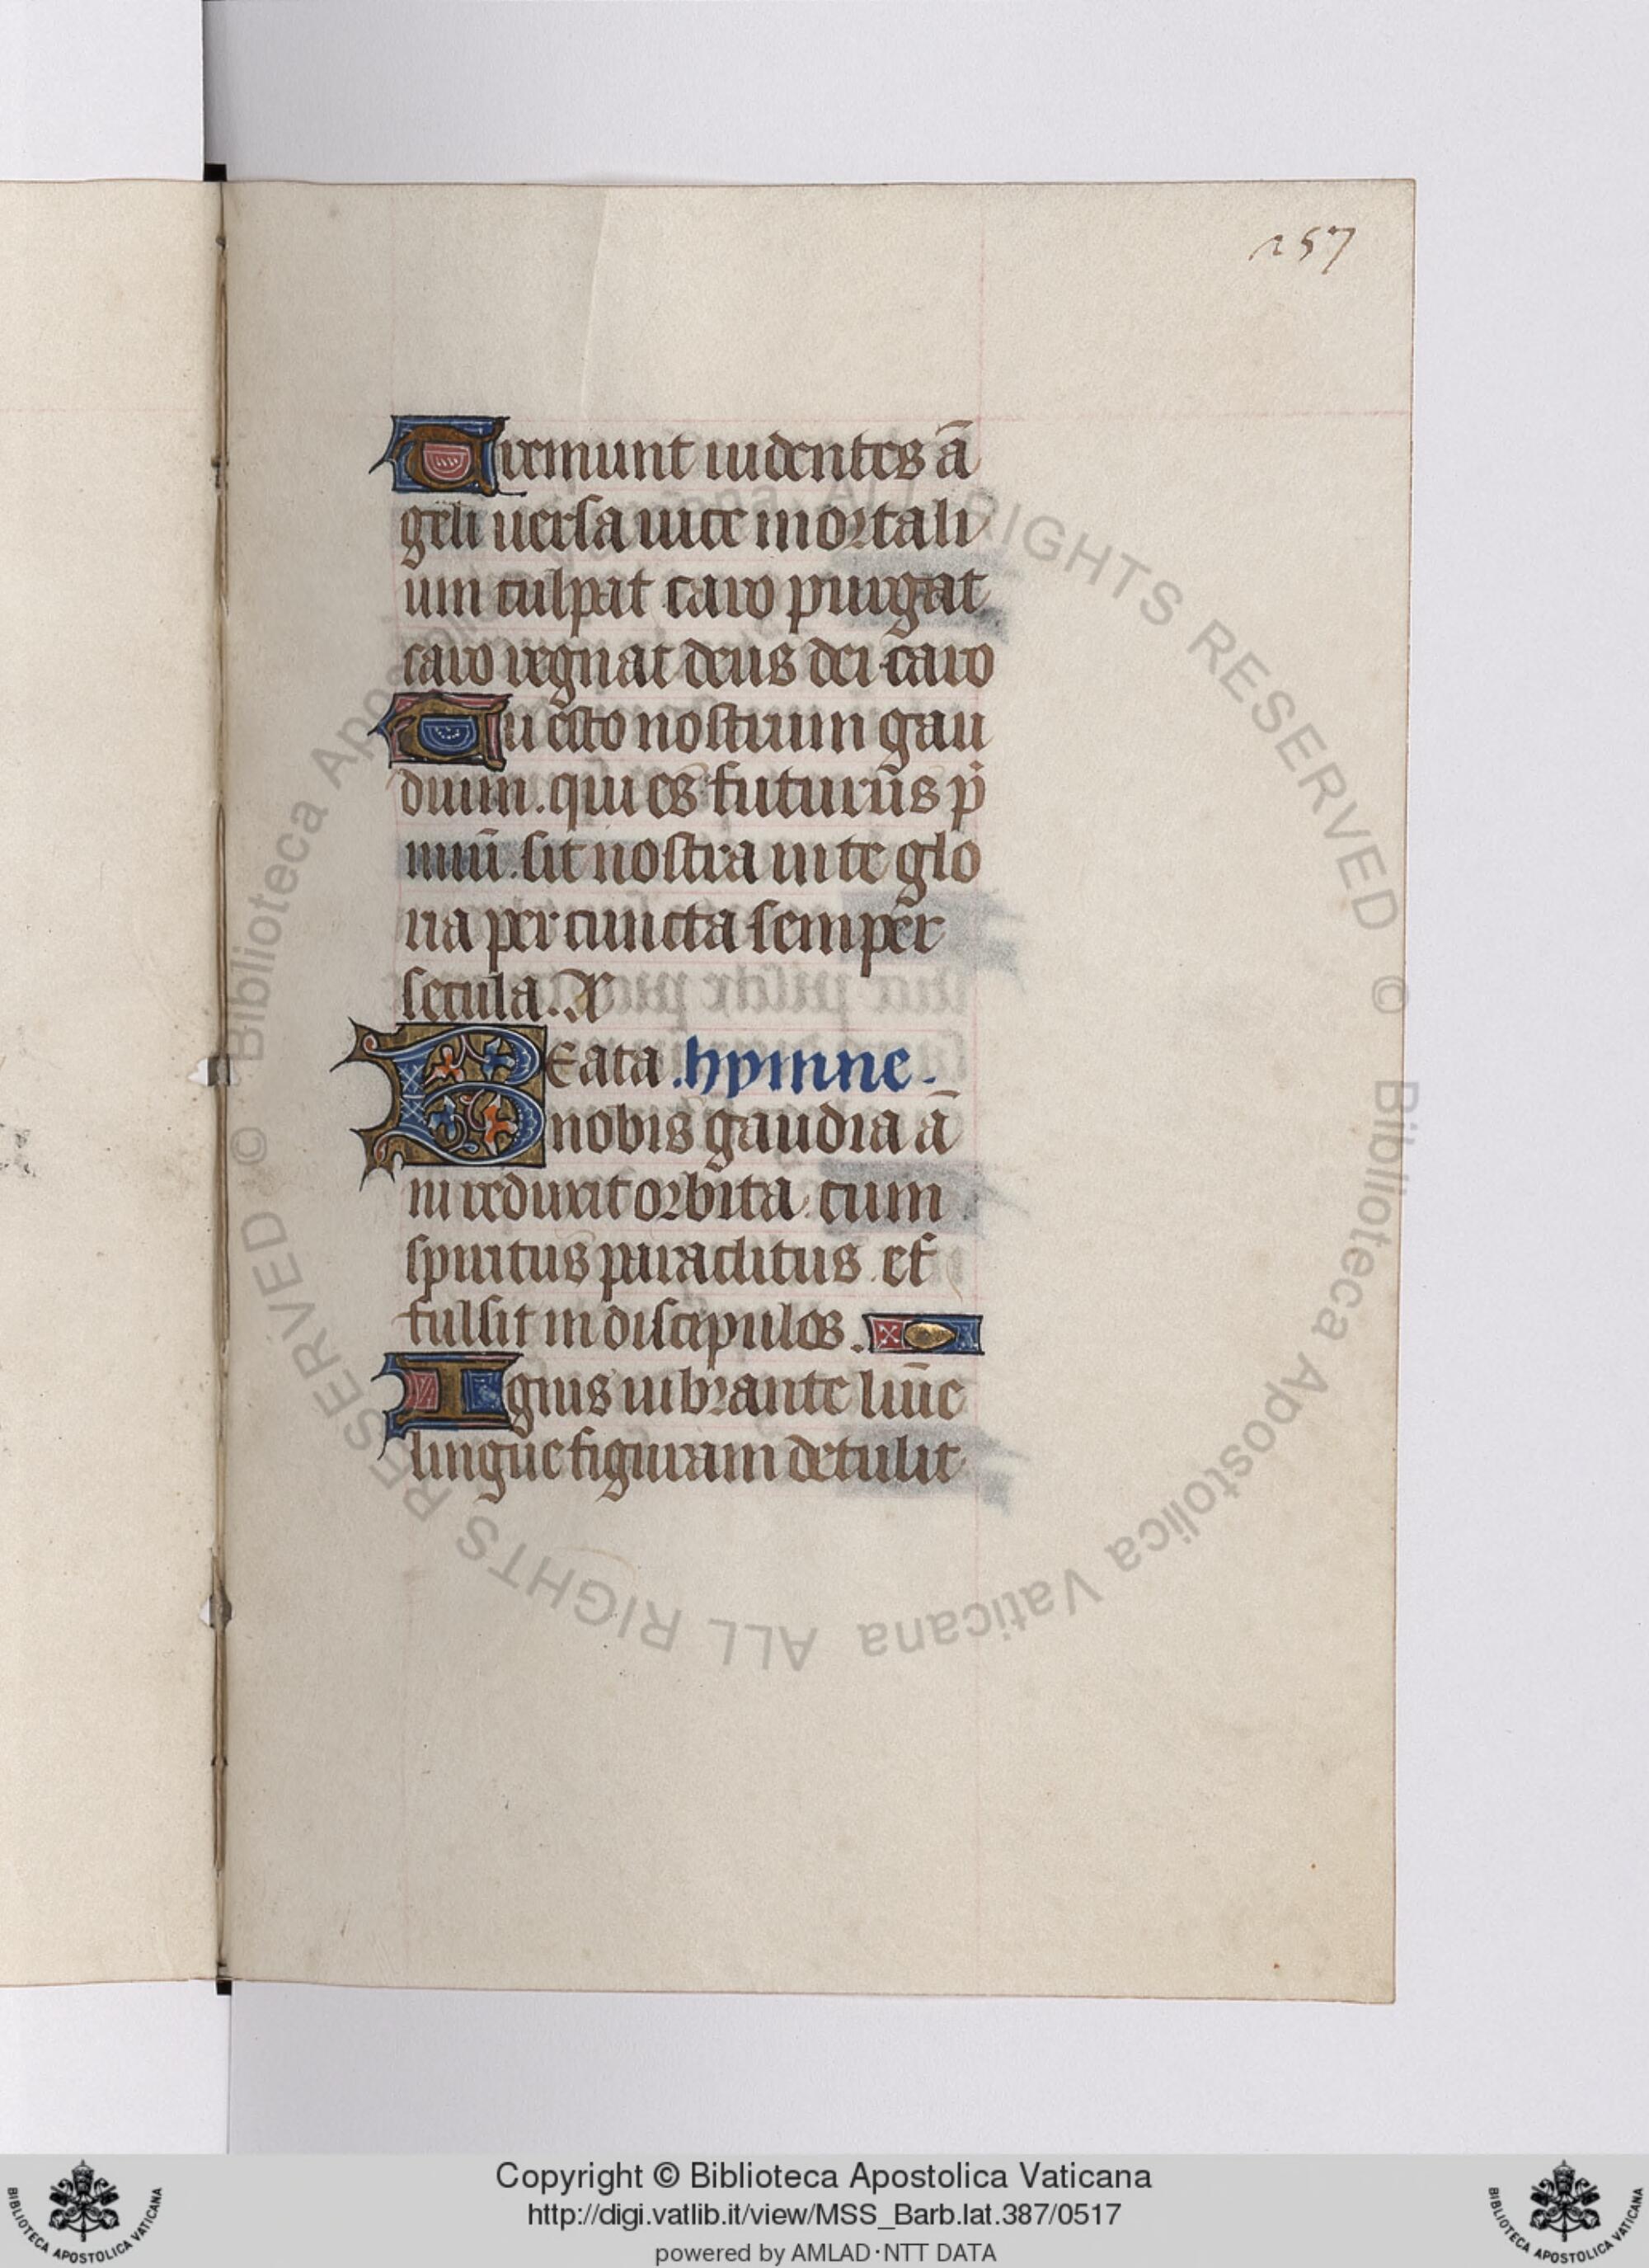 257
Tremunt uidentes ā
geli uersa uice mortali
um culpat caro purgat
caro regnat deus dei caro
Tu esto nostrum gau
dium. qui es futurus p̄
miū. sit nostra in te glo
ria per cuncta semper
secula. A
Beata. hympne.
nobis gaudia ā
ni reduxit orbita. cum
spiritus paraclitus. ef
fulsit in discipulos.
Ignis uibrante lūīe
lingue figuram detulit
© Biblioteca Apostolica Vaticana ALL RIGHTS RESERVED © Biblioteca Apostolica Vaticana ALL RIGHTS RESERVED
Copyright © Biblioteca Apostolica Vaticana
http://digi.vatlib.it/view/MSS_Barb.lat.387/0517
powered by AMLAD·NTT DATA
BIBLIOTECA APOSTOLICA VATICANA
BIBLIOTECA APOSTOLICA VATICANA